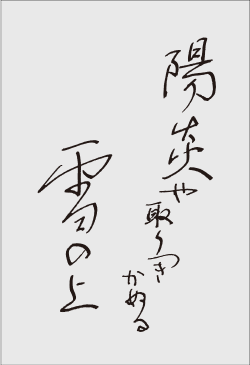 陽炎や取りつきかぬる
雪の上